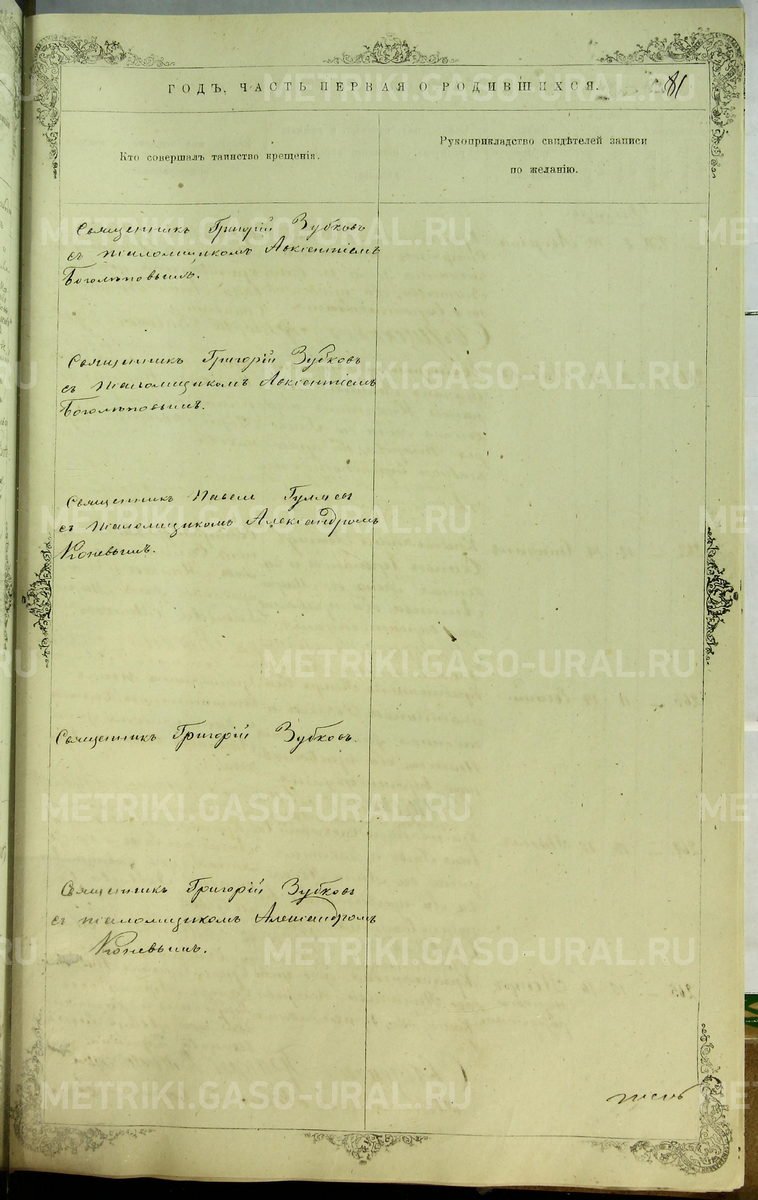 ГОДЪ, ЧАСТЬ ПЕРВАЯ О РОДИВШИХСЯ.
81
Кто совершалъ таинство крещенія.
Рукоприкладство свидѣтелей записи
по желанію.
Священникъ Григорій Зубковъ
съ псаломщикомъ Авксентіемъ
Боголѣповымъ.
Священникъ Григорій Зубковъ
съ псаломщикомъ Авксентіемъ
Боголѣповымъ.
Священникъ Павелъ
съ псаломщикомъ Александромъ
Коневымъ.
Священникъ Григорій Зубковъ.
Священникъ Григорій Зубковъ
съ псаломщикомъ Александромъ
Коневымъ.
METRIKI.GASO-URAL.RU